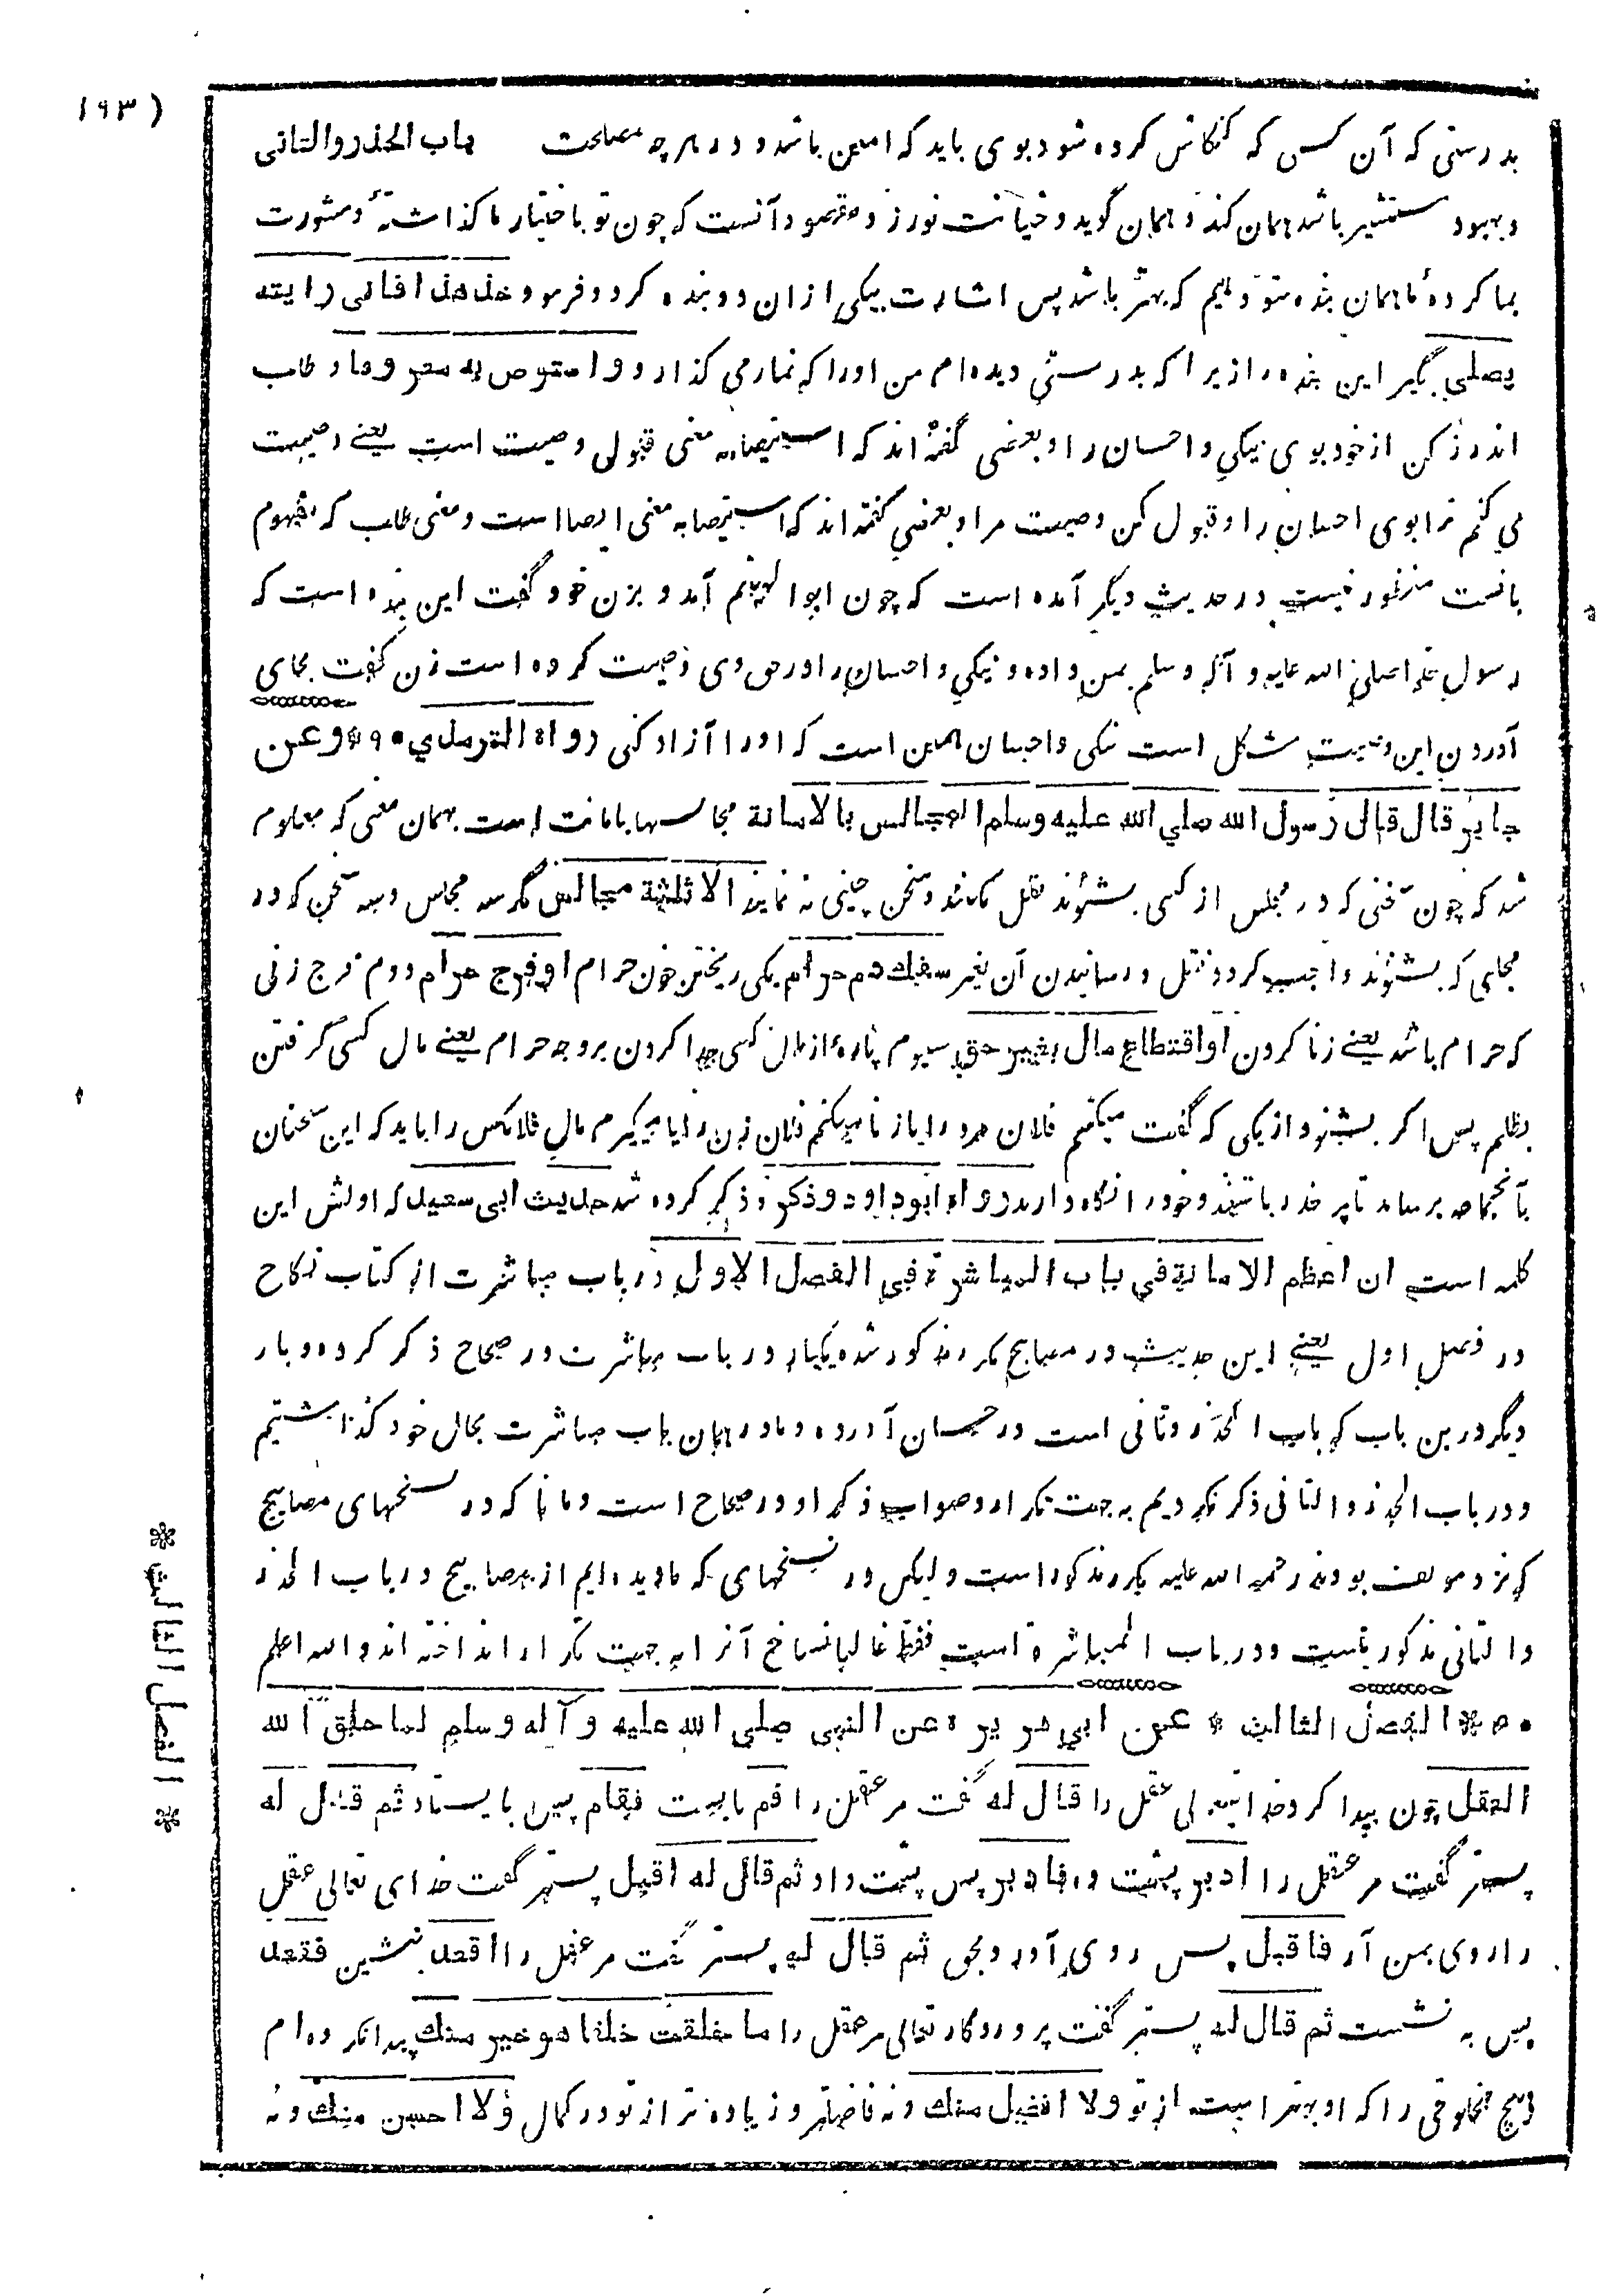 (۱۹۳
باب الحذر والتانی
بدرستی که آن کس که کنکاش کرده شود بوی باید که امین باشد و در هر چه مصلحت
و بهبود مستشیر باشد همان کند و همان گوید و خیانت نورزد و مقصود آنست که چون تو باختیار ما گذاشتهٔ و مشورت
بما کردهٔ ما همان بنده بتو دهیم که بهتر باشد پس اشارت بیکی ازان دو بنده کرد و فرمود خذ هذا فانی رایته
یصلی بگیر این بنده را زیرا که بدرستی دیده ام من او را که نماز می گذارد و استوص به معروفا و طلب
اندرز کن از خود بوی نیکی و احسان را و بعضی گفته اند که استیصا بمعنی قبول وصیت است یعنے وصیت
می کنم ترا بوی احسان را و قبول کن وصیت مرا و بعضی گفته اند که استیصا به معنی ایصا است و معنی طلب که مفهوم
بابست منظور نیست در حدیث دیگر آمده است که چون ابوالهیثم آمد و بزن خود گفت این بنده است که
رسول خدا صلی الله علیه و آله و سلم بمن داده و نیکی و احسان را در حق وی وصیت کرده است زن گفت بجای
آوردن این وصیت مشکل است نیکی و احسان همین است که او را آزاد کنی رواه الترمذي * وعن
جابر قال قال رسول الله صلي الله عليه وسلم المجالس بالامانة مجالسها بامانت است بهمان معنی که معلوم
شد که چون سخنی که در مجلس از کسی بشنوند نقل نکنند و سخن چینی نه نمایند الا ثلثة مجالس مگر سه مجلس و سه سخن که در
مجلسی که بشنوند واجب گردد نقل و رسانیدن آن بغیر سفك دم حرام یکی ریختن خون حرام او فرج حرام دوم فرج زنی
که حرام باشد یعنے زنا کردن او اقتطاع مال بغیر حق سیوم پارهٔ از مال کسی جدا کردن بروجه حرام یعنے مال کسی گرفتن
بظلم پس اگر بشنود از یکی که گفت میکشم فلان مرد را یا زنا میکنم فلان زن را یا میگیرم مال فلانکس را باید که این سخنان
بآنجماعه برساند تا پر حذر باشند و خود را نگاه دارند رواه ابو داود و ذکر و ذکر کرده شد حدیث ابی سعید که اولش این
کلمه است ان اعظم الامانة في باب المباشرة في الفصل الاول در باب مباشرت از کتاب نکاح
در فصل اول یعنے این حدیث در مصابیح مکرر مذکور شده یکبار در باب مباشرت در صحاح ذکر کرده و بار
دیگر درین باب که باب الحذر و تانی است در حسان آورده و ما در همان باب مباشرت بحال خود گذاشتیم
و در باب الحذر و التانی ذکر نکردیم به جهت تکرار و صواب ذکر او در صحاح است و مانا که در نسخهای مصابیح
که نزد مولف بودند رحمة الله علیه مکرر مذکور است و لیکن در نسخهای که ما دیده ایم از مصابیح در باب الحذر
و التانی مذکور نیست و در باب المباشرة است فقط غالبا نساخ آنرا به جهت تکرار انداخته اند و الله اعلم
* الفصل الثالث * عن ابي هريرة عن النبي صلي الله عليه و آله وسلم لما خلق الله
العقل چون پیدا کرد خدای تعالی عقل را قال له گفت مر عقل را قم بایست فقام پس بایستاد ثم قال له
پستر گفت مر عقل را ادبر پشت ده فادبر پس پشت داد ثم قال له اقبل پستر گفت خدای تعالی عقل
را روی بمن آر فاقبل پس روی آورد بحق ثم قال له پستر گفت مر عقل را اقعد بنشین فقعد
پس به نشست ثم قال له پستر گفت پروردگار تعالی مر عقل را ما خلقت خلقا هو خیر منك پیدا نکرده ام
هیچ مخلوقی را که او بهتر است از تو ولا افضل منك و نه فاضلتر و زیاده تر از تو در کمال ولا احسن منك و نه
* الفصل الثالث *